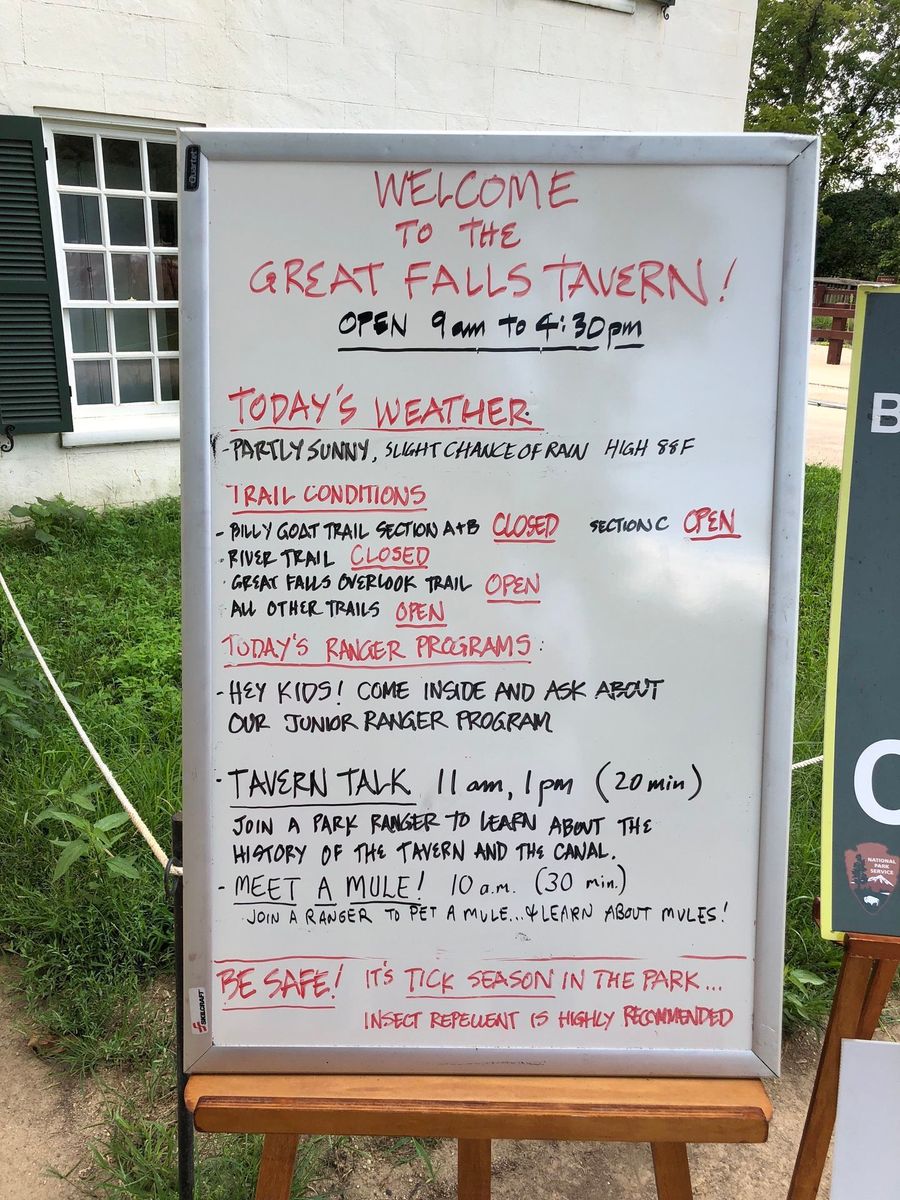 Quartet
WELCOME
TO THE
GREAT FALLS TAVERN!
OPEN 9am to 4:30pm
TODAY'S WEATHER
- PARTLY SUNNY, SLIGHT CHANCE OF RAIN HIGH 88F
TRAIL CONDITIONS
- BILLY GOAT TRAIL SECTION A+B CLOSED SECTION C OPEN
· RIVER TRAIL CLOSED
· GREAT FALLS OVERLOOK TRAIL OPEN
· ALL OTHER TRAILS OPEN
TODAY'S RANGER PROGRAMS:
- HEY KIDS! COME INSIDE AND ASK ABOUT
OUR JUNIOR RANGER PROGRAM
· TAVERN TALK 11am, 1pm (20 min)
JOIN A PARK RANGER TO LEARN ABOUT THE
HISTORY OF THE TAVERN AND THE CANAL.
- MEET A MULE! 10 a.m. (30 min.)
JOIN A RANGER TO PET A MULE...& LEARN ABOUT MULES!
BE SAFE! IT'S TICK SEASON IN THE PARK...
INSECT REPELLENT IS HIGHLY RECOMMENDED
SKILCRAFT
B
C
NATIONAL
PARK
SERVICE